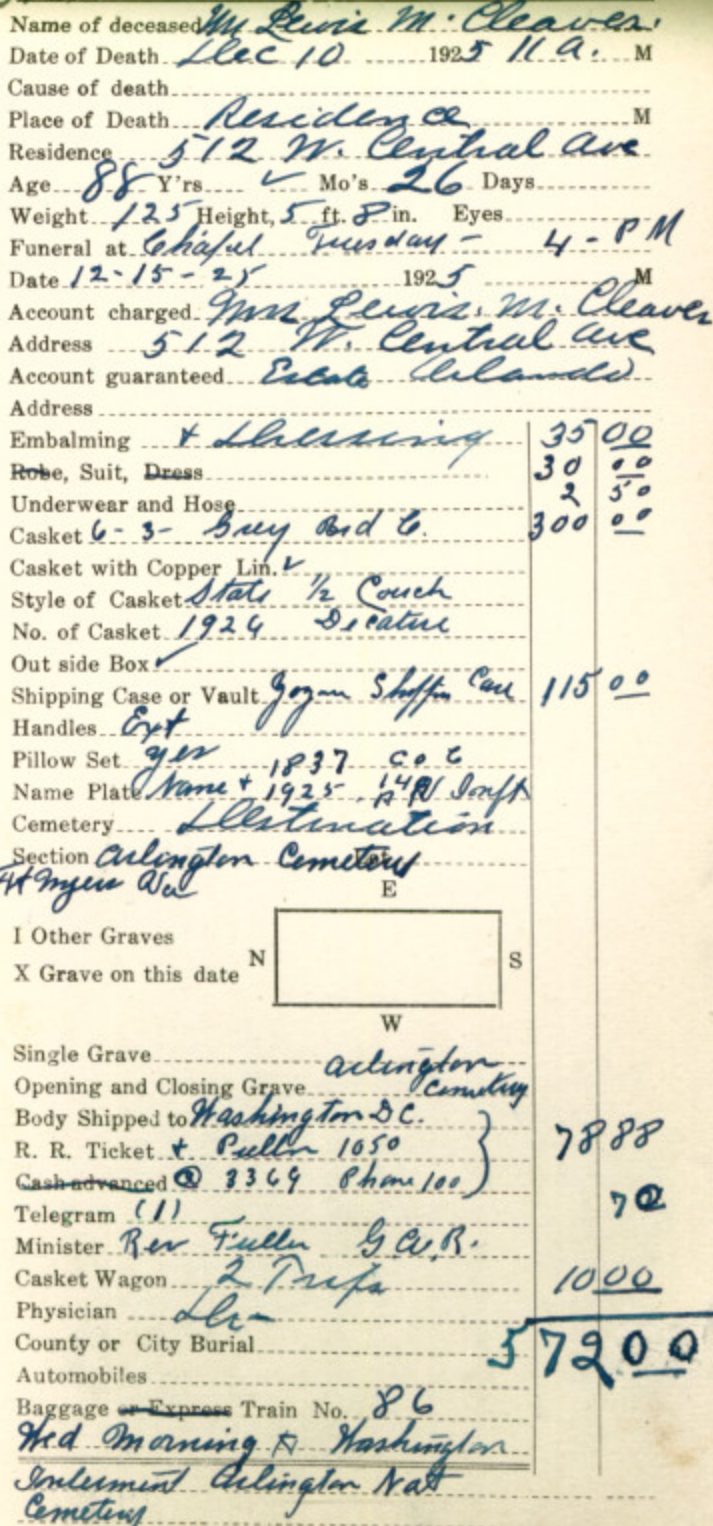 Name of deceased Mr Lewis M. Cleaver.
Date of Death Dec 10 1925 11 a. M
Cause of death
Place of Death Residence M
Residence 512 W. Central Ave
Age 88 Y'rs ✓ Mo's 26 Days
Weight 125 Height, 5 ft. 8 in. Eyes
Funeral at Chapel Tuesday - 4 - PM
Date 12-15-25 1925 M
Account charged Mrs Lewis. M. Cleaver
Address 512 W. Central Ave
Account guaranteed Estate Orlando
Address
Embalming + Dressing 35 00
Robe, Suit, Dress 30 00
Underwear and Hose 2 50
Casket 6-3- Grey Brd C. 300 00
Casket with Copper Lin. ✓
Style of Casket State 1/2 Couch
No. of Casket 1926 Decature
Out side Box ✓
Shipping Case or Vault Case 115 00
Handles Ext
Pillow Set yes 1837 Co C
Name Plate Name + 1925 14
Cemetery Destination
Section Arlington Cemetery
Ft Myers Va
E
I Other Graves
X Grave on this date
N
S
W
Single Grave
Opening and Closing Grave Arlington Cemetery
Body Shipped to Washington D.C.
R. R. Ticket + Pullm 1050 78 88
Cash advanced @ 3369 Phone 100
Telegram (1) 70
Minister Rev Fuller G.A.R.
Casket Wagon 2 Trips 10 00
Physician Dr-
County or City Burial 572 00
Automobiles
Baggage or Express Train No. 86
Wed Morning Washington
Interment Arlington Nat
Cemetery